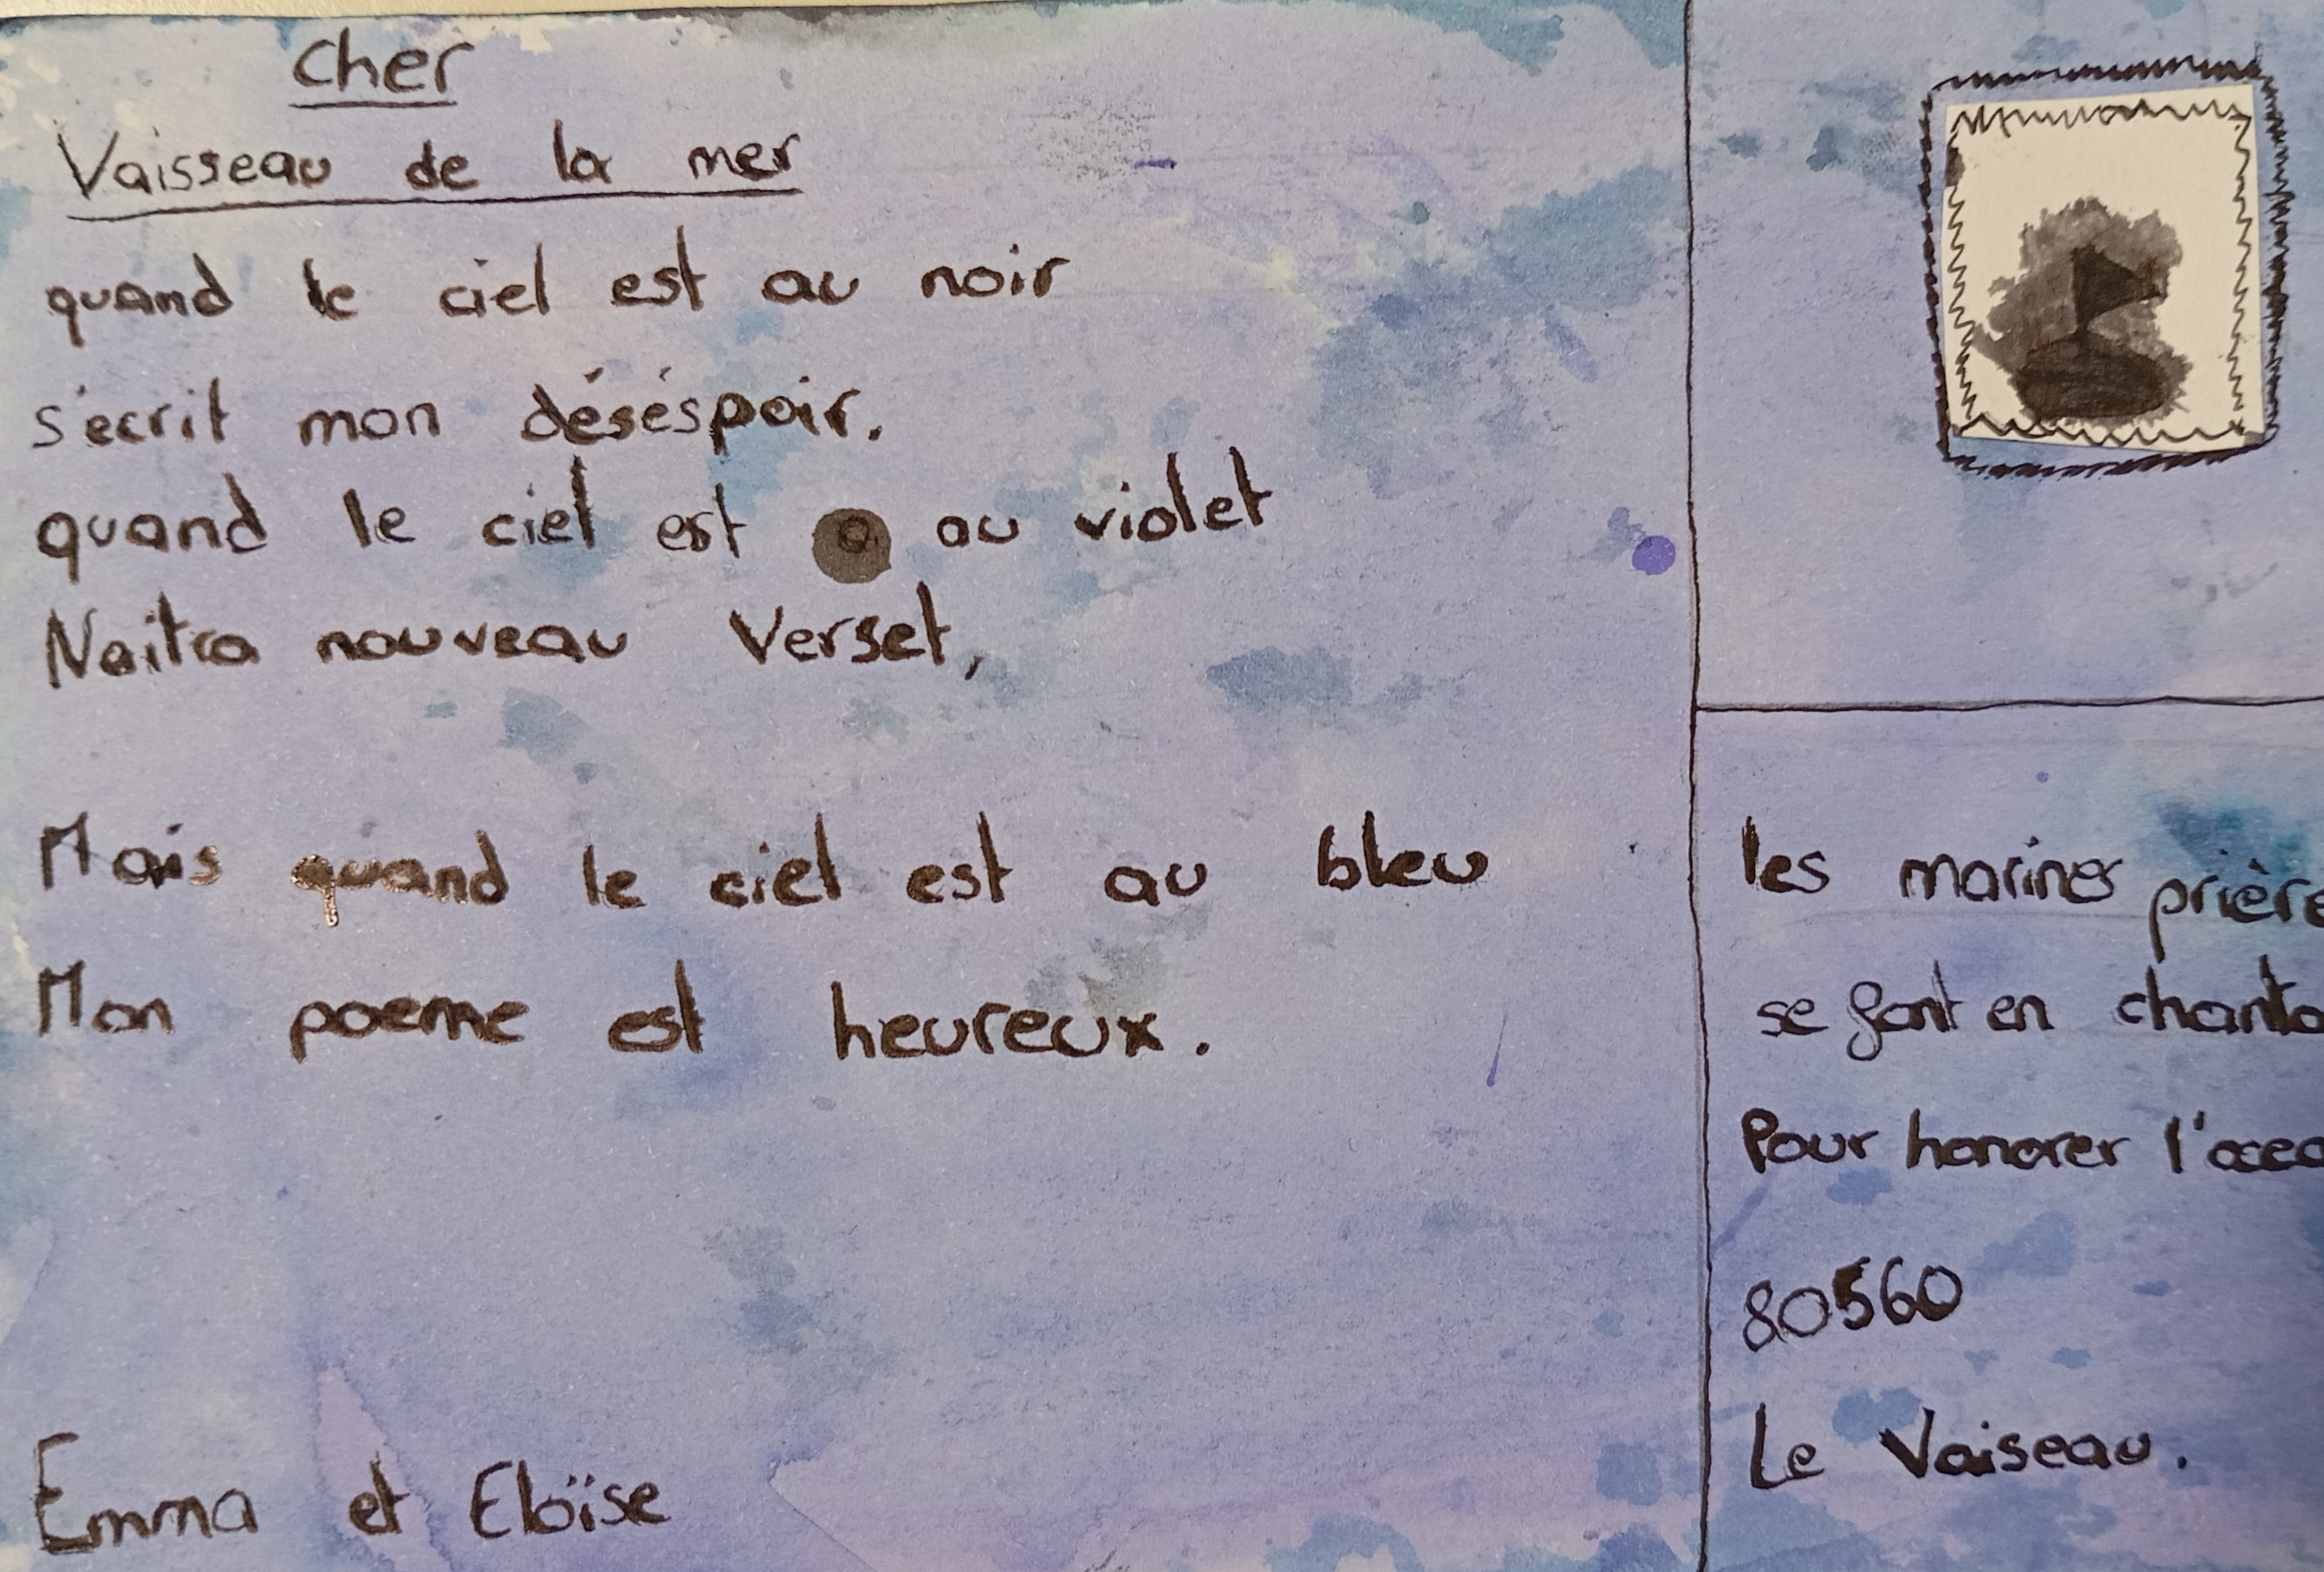 Cher
Vaisseau de la mer
quand le ciel est au noir
s'ecrit mon déséspoir.
quand le ciel est au violet
Naitra nouveau Verset,
Mais quand le ciel est au bleu
Mon poeme est heureux.
Emma et Eloïse
les marines prière
se font en chanta
Pour honorer l'ocea
80560
Le Vaiseau.